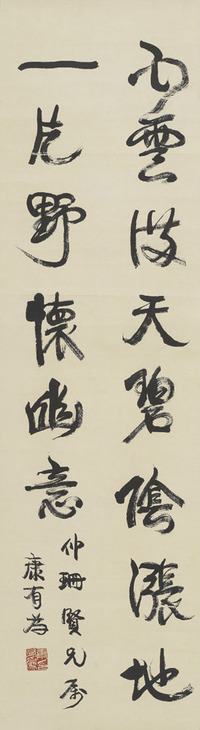 雲天碧陰漲地
一片野懷幽意
仲珊賢兄属
康有為